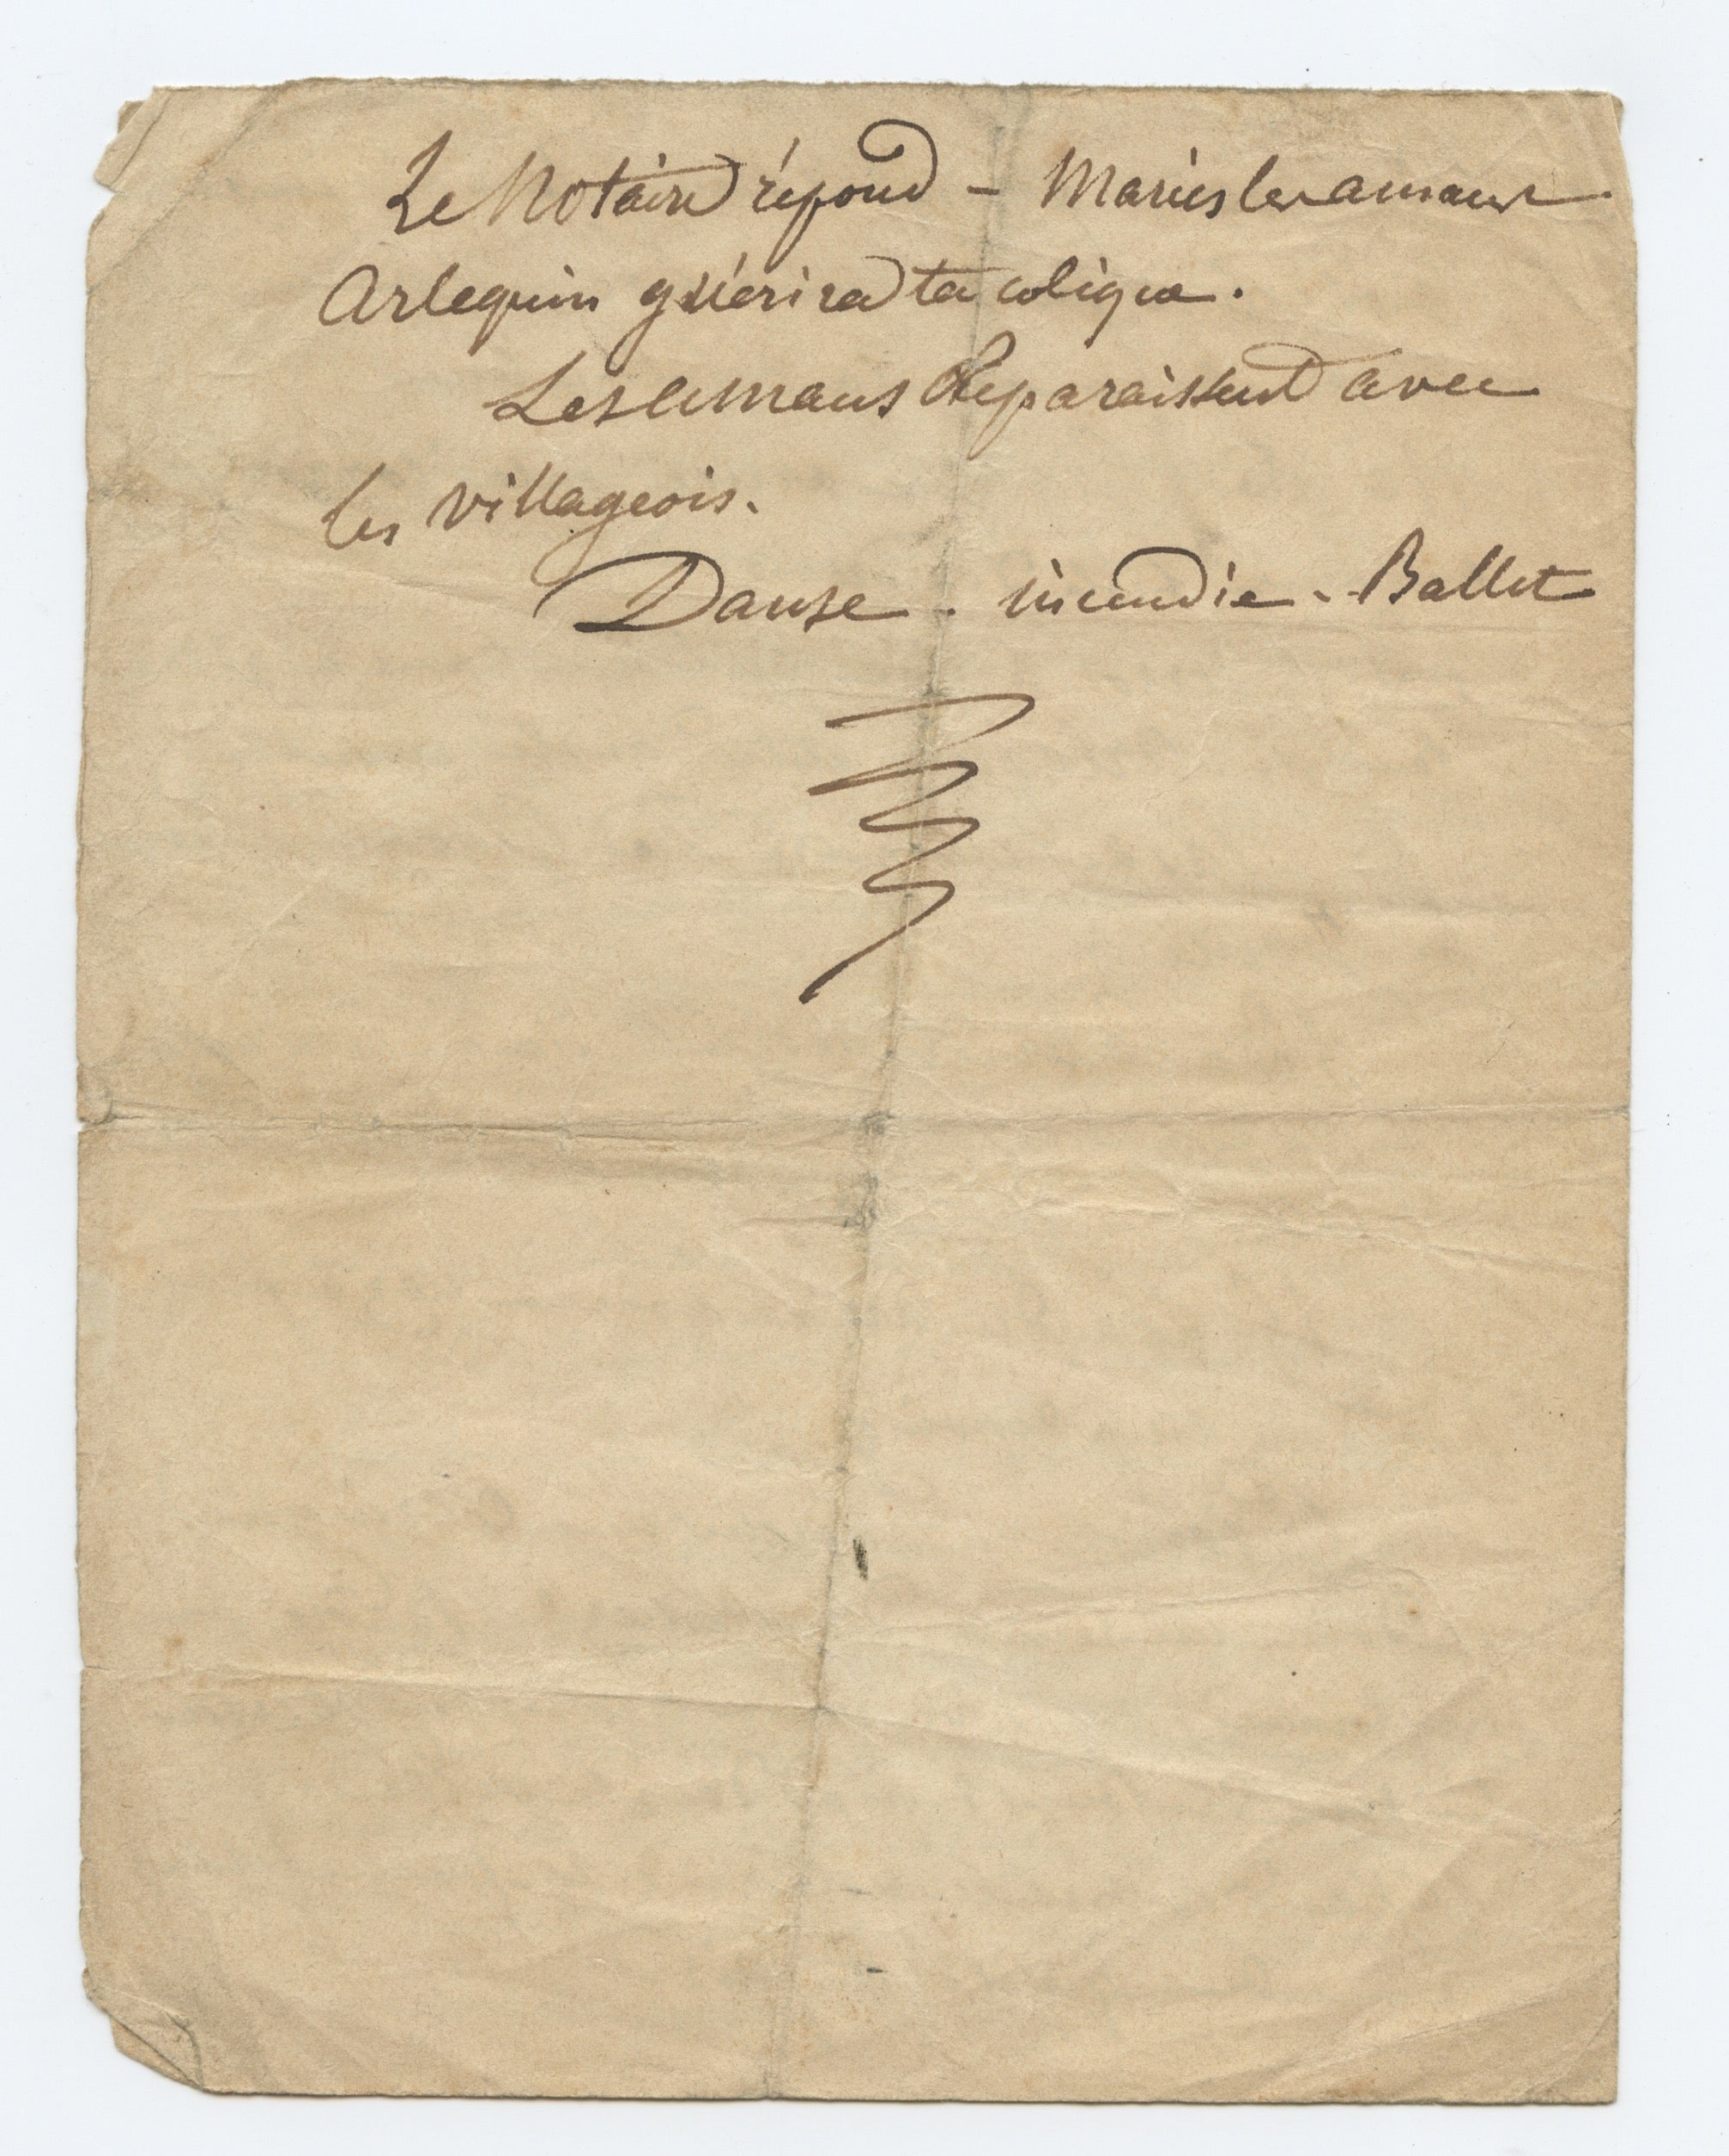 Le Notaire répond - Maries les amans.
Arlequin guérira ta colique.
Les amans Reparaissent avec
les villageois.
Danse - incendie - Ballet